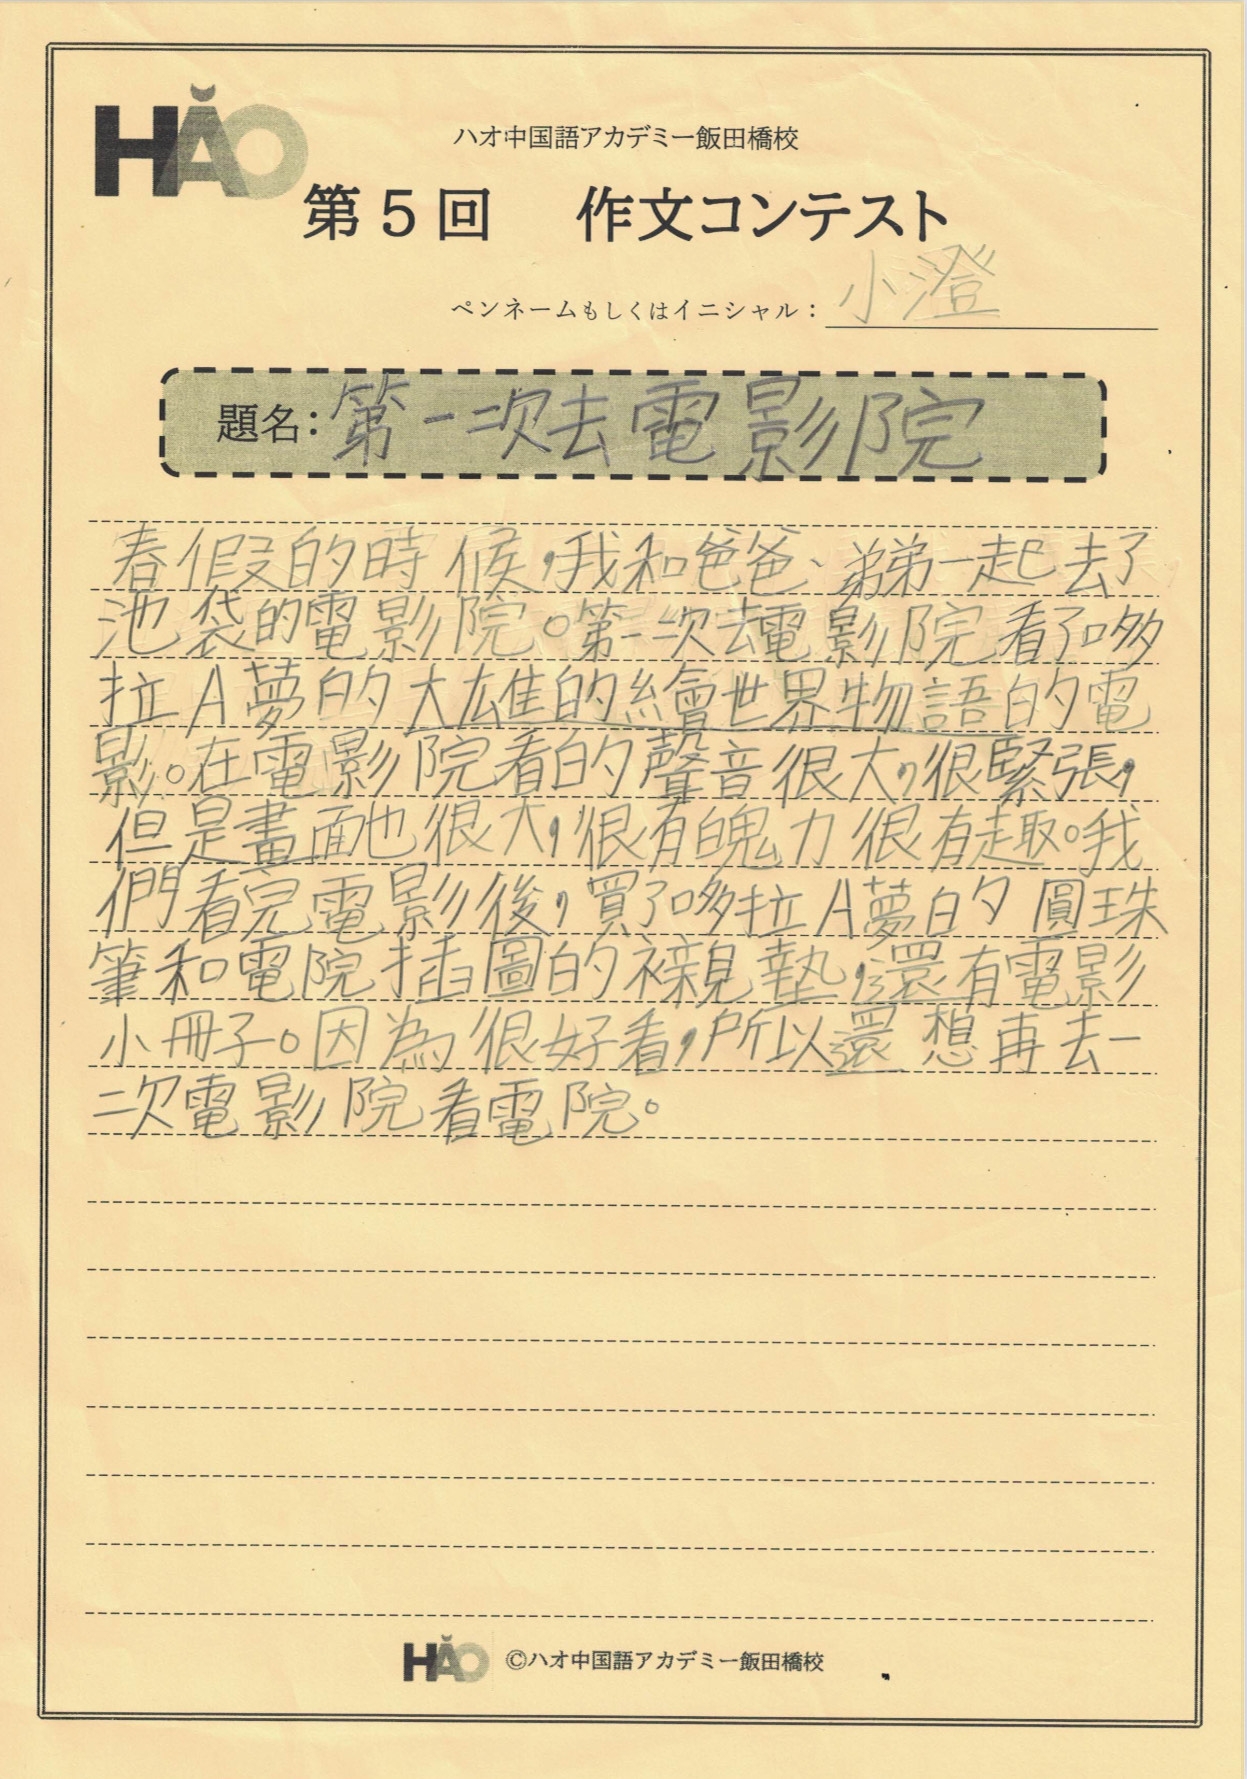 HǍO
ハオ中国語アカデミー飯田橋校
第5回 作文コンテスト
ペンネームもしくはイニシャル：小澄
題名：第一次去電影院
春假的時候，我和爸爸、弟弟一起去了
池袋的電影院。第一次去電影院看了哆
拉A夢的大雄的繪世界物語的電
影。在電影院看的聲音很大，很緊張，
但是畫面也很大，很有魄力很有趣。我
們看完電影後，買了哆拉A夢的圓珠
筆和電院插圖的襯墊，還有電影
小冊子。因為很好看，所以還想再去一
次電影院看電院。
HǍO ©ハオ中国語アカデミー飯田橋校